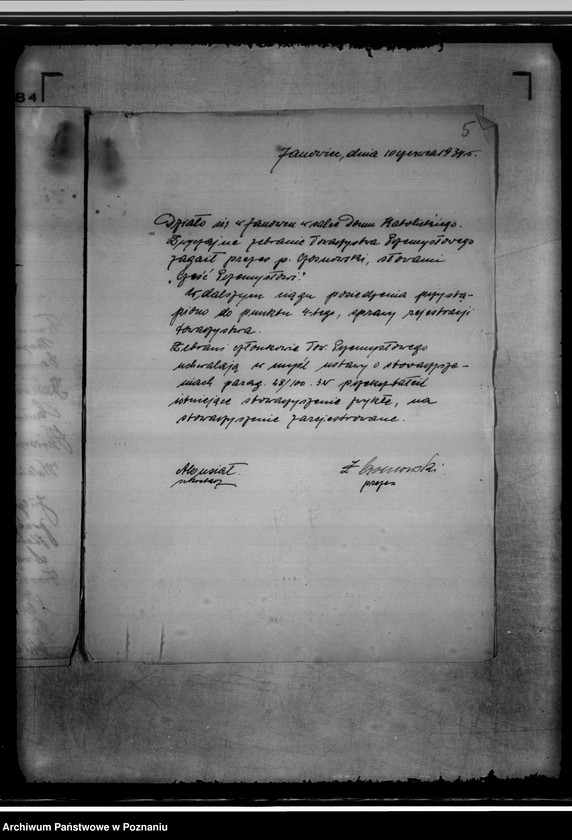 84
5
Janowiec, dnia 10 czerwca 1934 r.
Działo się w Janowcu w salce Domu Katolickiego.
Zwyczajne zebranie Towarzystwa Przemysłowego
zagaił prezes p. słowami
"Cześć Przemysłowi."
W dalszym ciągu posiedzenia przystą-
piono do punktu 4-tego, sprawy rejestracji
towarzystwa.
Zebrani członkowie Tow. Przemysłowego
uchwalają w myśl ustawy o stowarzysze-
niach parag. przekształcić
istniejące stowarzyszenie zwykłe, na
stowarzyszenie zarejestrowane.
sekretarz
prezes
Archiwum Państwowe w Poznaniu